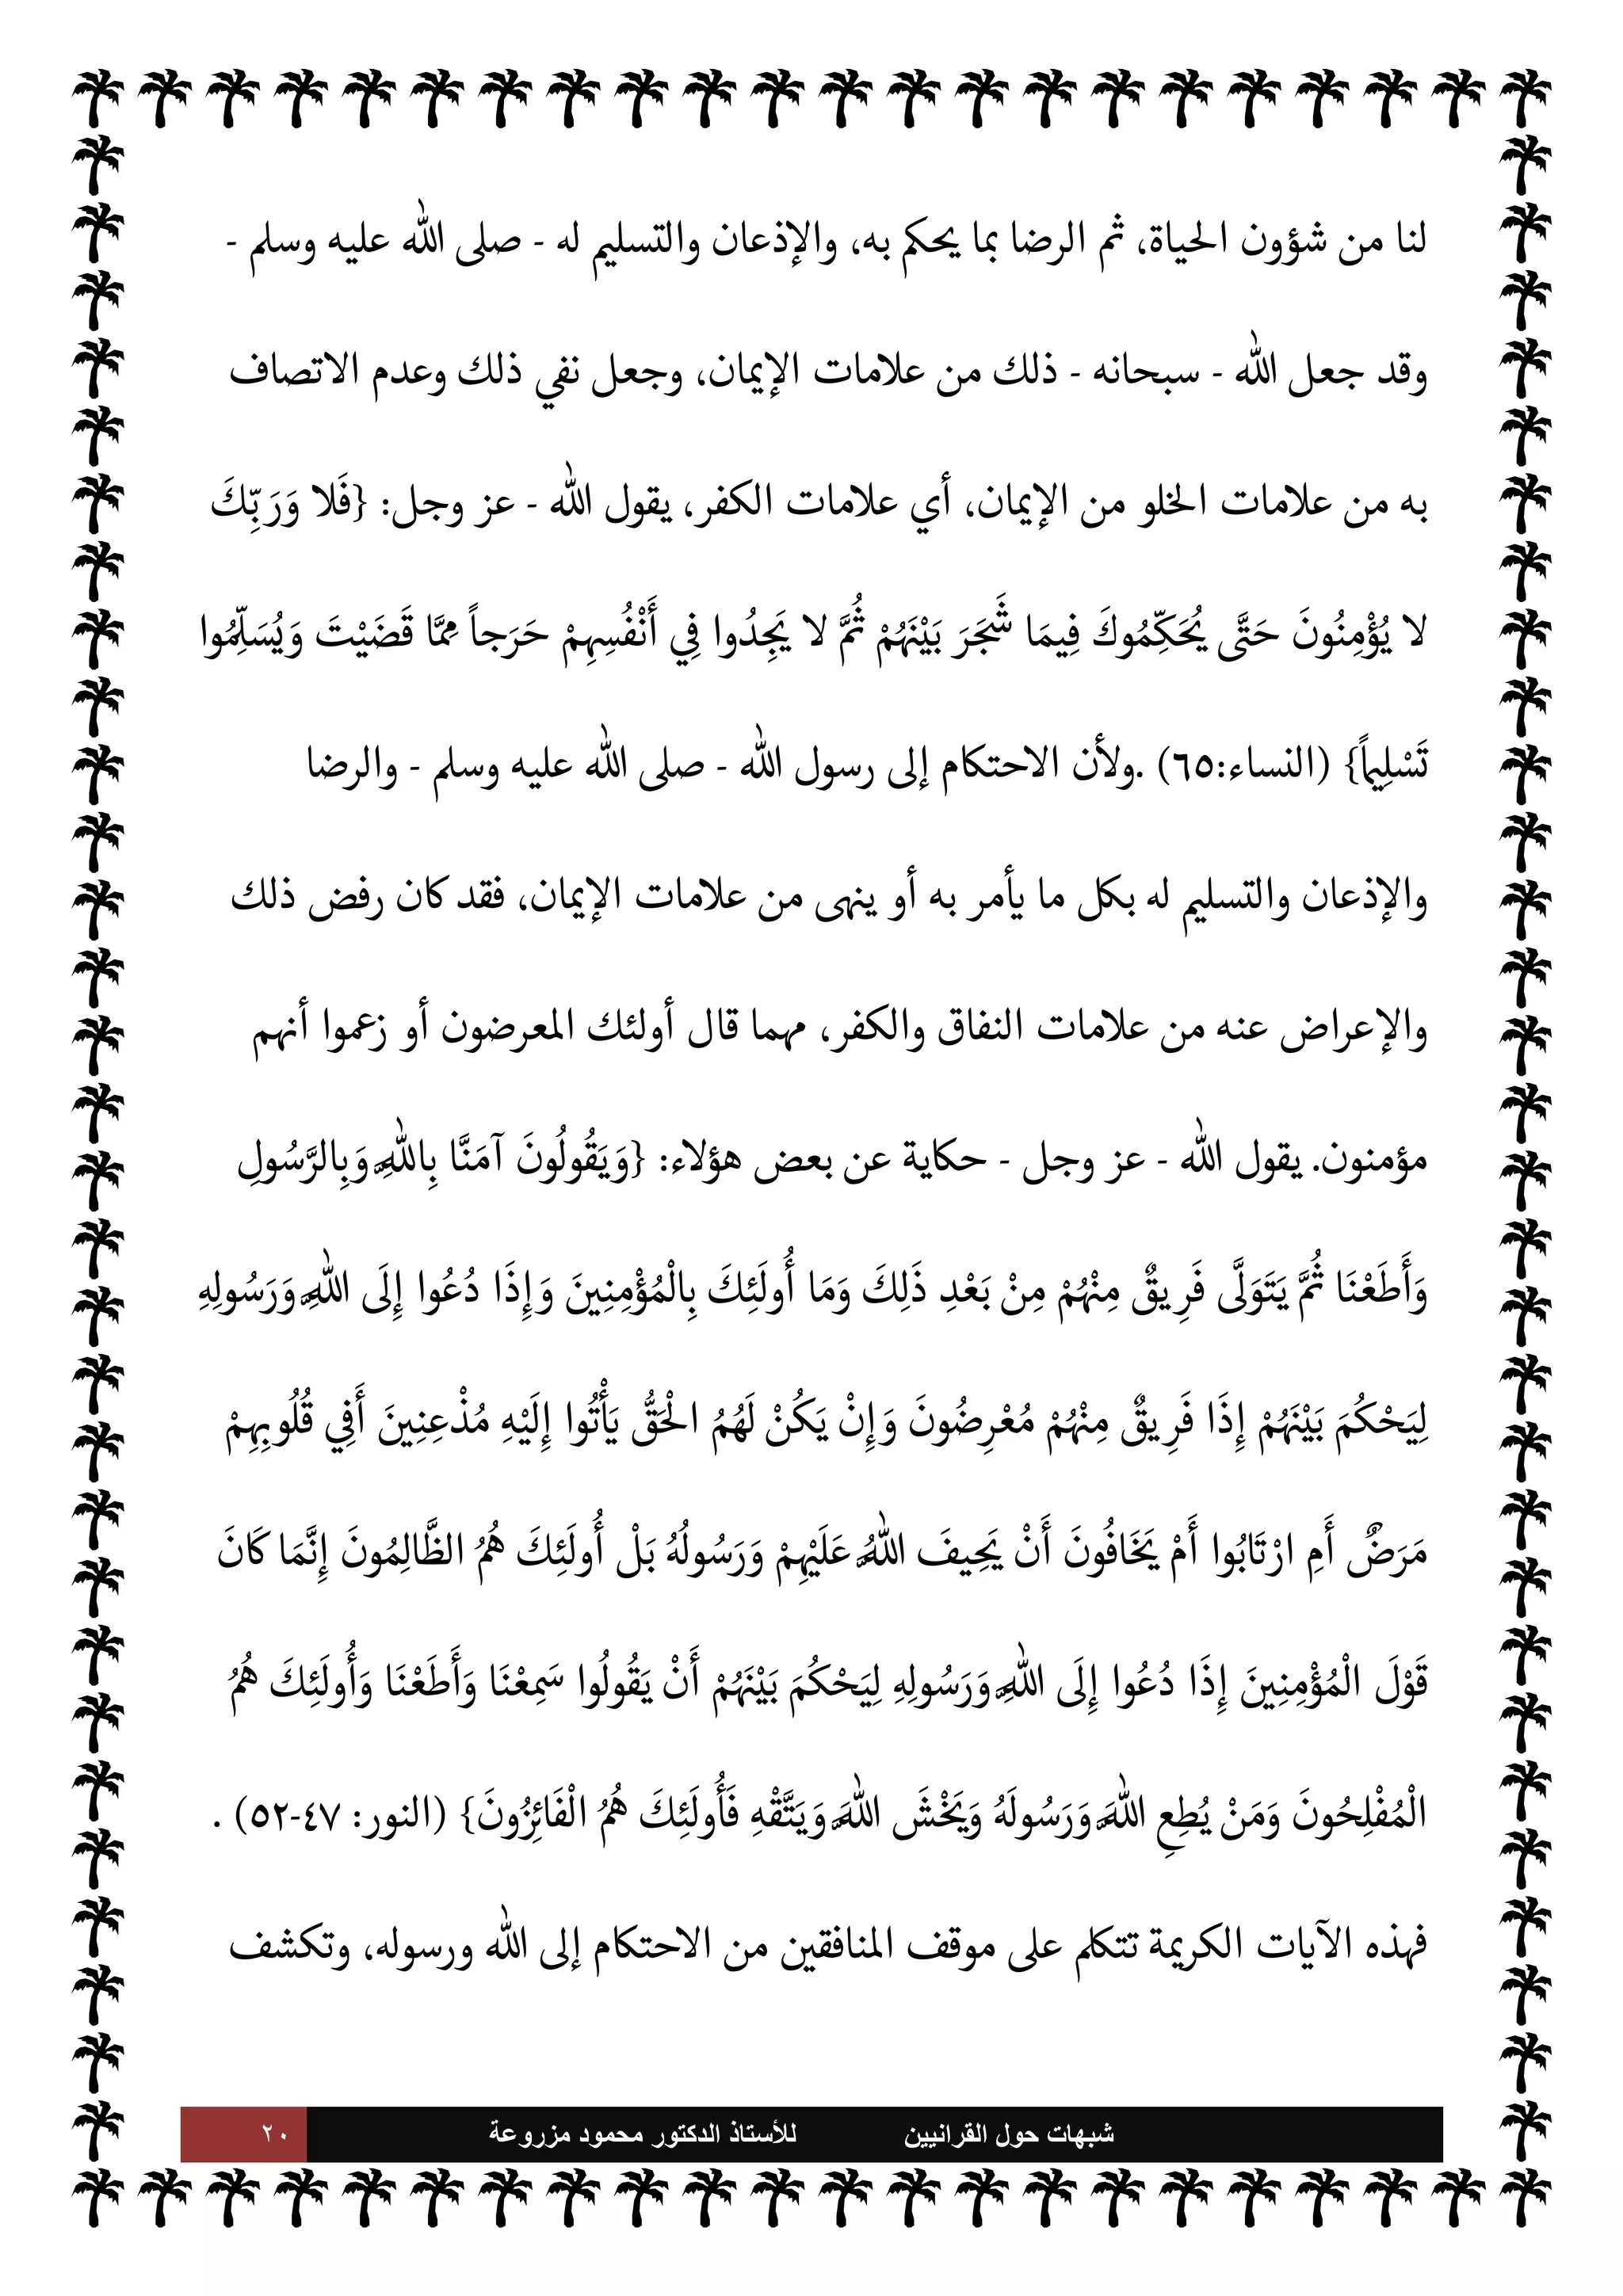 لنا من شؤون الحياة، ثم الرضا بما يحكم به، والإذعان والتسليم له - صلى الله عليه وسلم -
وقد جعل الله - سبحانه - ذلك من علامات الإيمان، وجعل نفي ذلك وعدم الاتصاف
به من علامات الخلو من الإيمان، أي علامات الكفر، يقول الله - عز وجل: {فَلا وَرَبِّكَ
لا يُؤْمِنُونَ حَتَّى يُحَكِّمُوكَ فِيمَا شَجَرَ بَيْنَهُمْ ثُمَّ لا يَجِدُوا فِي أَنْفُسِهِمْ حَرَجاً مِمَّا قَضَيْتَ وَيُسَلِّمُوا
تَسْلِيماً} (النساء:٦٥) .ولأن الاحتكام إلى رسول الله - صلى الله عليه وسلم - والرضا
والإذعان والتسليم له بكل ما يأمر به أو ينهى من علامات الإيمان، فقد كان رفض ذلك
والإعراض عنه من علامات النفاق والكفر، مهما قال أولئك المعرضون أو زعموا أنهم
مؤمنون. يقول الله - عز وجل - حكاية عن بعض هؤلاء: {وَيَقُولُونَ آمَنَّا بِاللَّهِ وَبِالرَّسُولِ
وَأَطَعْنَا ثُمَّ يَتَوَلَّى فَرِيقٌ مِنْهُمْ مِنْ بَعْدِ ذَلِكَ وَمَا أُولَئِكَ بِالْمُؤْمِنِينَ وَإِذَا دُعُوا إِلَى اللَّهِ وَرَسُولِهِ
لِيَحْكُمَ بَيْنَهُمْ إِذَا فَرِيقٌ مِنْهُمْ مُعْرِضُونَ وَإِنْ يَكُنْ لَهُمُ الْحَقُّ يَأْتُوا إِلَيْهِ مُذْعِنِينَ أَفِي قُلُوبِهِمْ
مَرَضٌ أَمِ ارْتَابُوا أَمْ يَخَافُونَ أَنْ يَحِيفَ اللَّهُ عَلَيْهِمْ وَرَسُولُهُ بَلْ أُولَئِكَ هُمُ الظَّالِمُونَ إِنَّمَا كَانَ
قَوْلَ الْمُؤْمِنِينَ إِذَا دُعُوا إِلَى اللَّهِ وَرَسُولِهِ لِيَحْكُمَ بَيْنَهُمْ أَنْ يَقُولُوا سَمِعْنَا وَأَطَعْنَا وَأُولَئِكَ هُمُ
الْمُفْلِحُونَ وَمَنْ يُطِعِ اللَّهَ وَرَسُولَهُ وَيَخْشَ اللَّهَ وَيَتَّقْهِ فَأُولَئِكَ هُمُ الْفَائِزُونَ} (النور: ٤٧-٥٢) .
فهذه الآيات الكريمة تتكلم على موقف المنافقين من الاحتكام إلى الله ورسوله، وتكشف
شبهات حول القرانيين للأستاذ الدكتور محمود مزروعة ٢٠